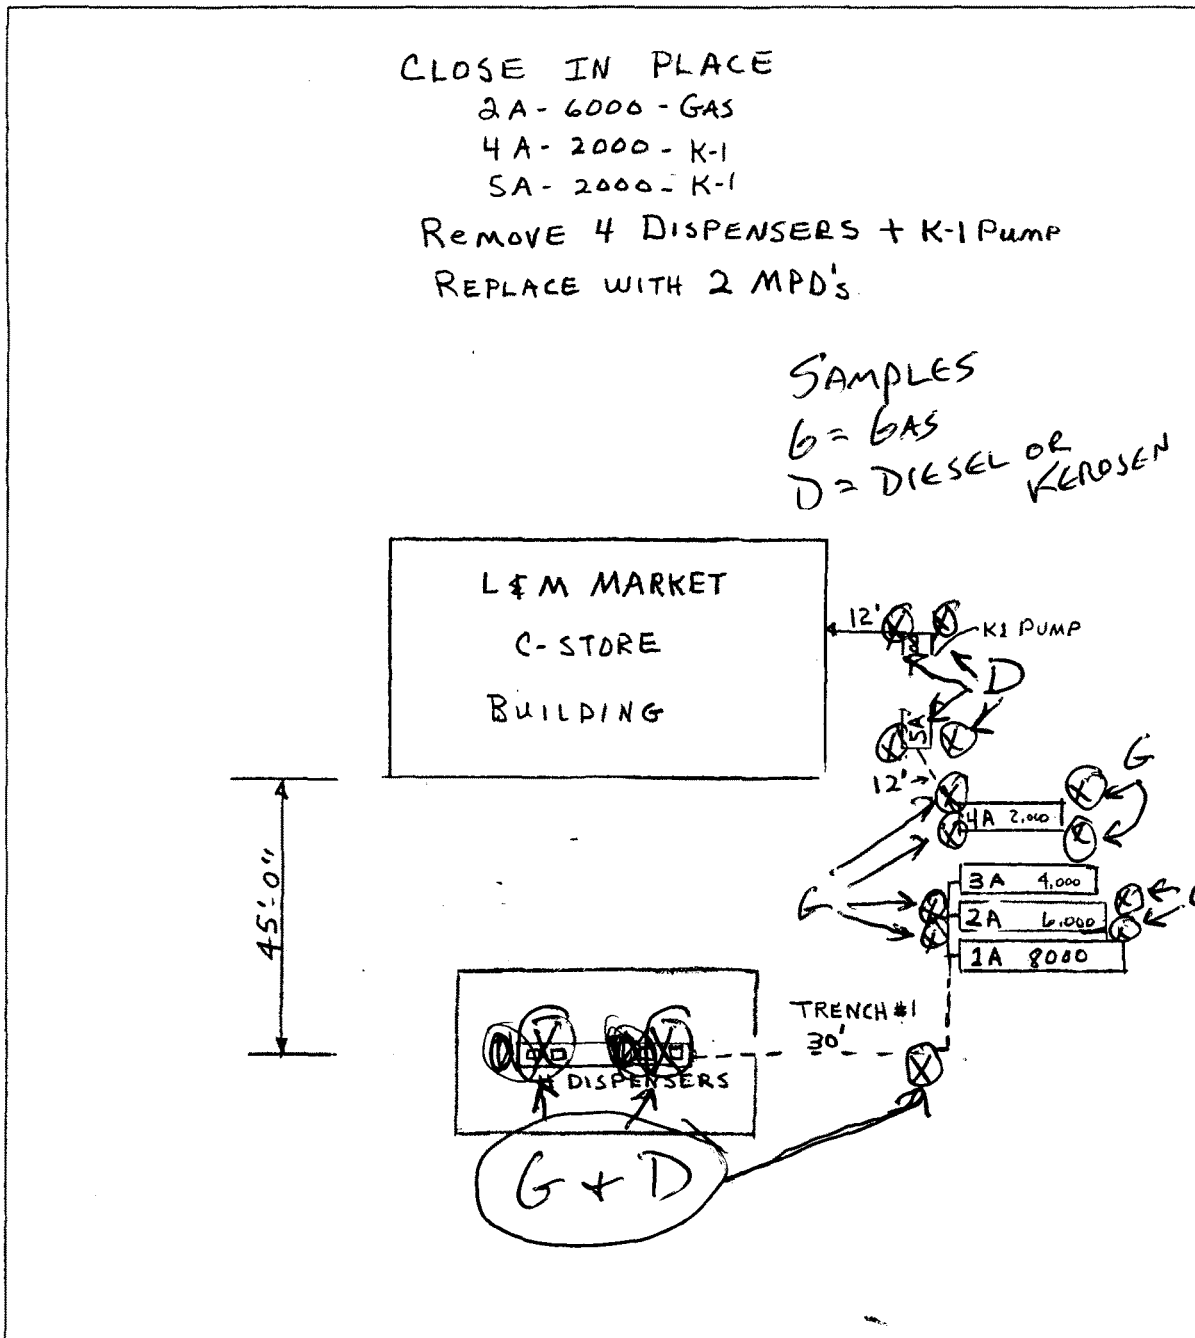 CLOSE IN PLACE
2A - 6000 - GAS
4A - 2000 - K-1
5A - 2000 - K-1
REMOVE 4 DISPENSERS + K-1 PUMP
REPLACE WITH 2 MPD's
SAMPLES
G = GAS
D = DIESEL OR
KEROSEN
L & M MARKET
C-STORE
BUILDING
12'
K1 PUMP
D
5A
12'
G
4A 2,000
3A 4,000
G
2A 6,000
1A 8000
45'-0"
TRENCH #1
30'
DISPENSERS
G + D